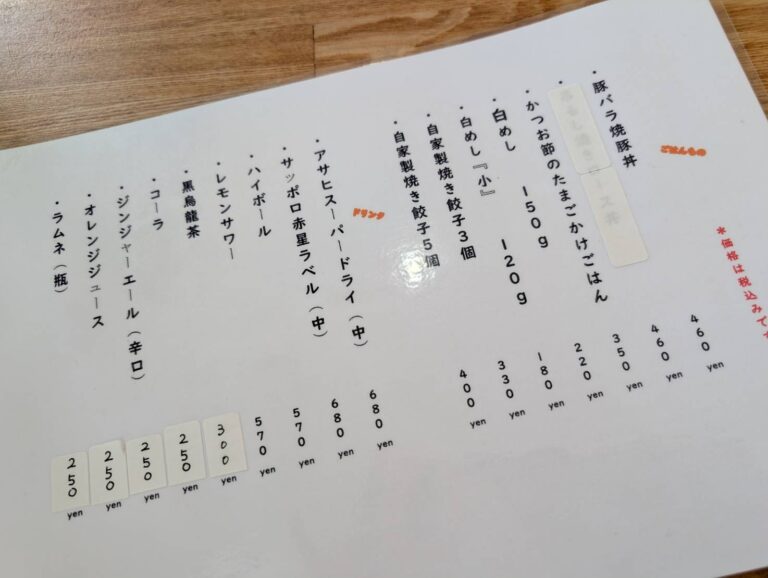 *価格は税込みで
・豚バラ焼豚丼 460 yen
・ 460 yen
・かつお節のたまごかけごはん 350 yen
・白めし 150g 220 yen
・白めし『小』 120g 180 yen
・自家製焼き餃子3個 330 yen
・自家製焼き餃子5個 400 yen
ドリンク
・アサヒスーパードライ(中) 680 yen
・サッポロ赤星ラベル(中) 680 yen
・ハイボール 570 yen
・レモンサワー 570 yen
・黒烏龍茶 300 yen
・コーラ 250 yen
・ジンジャーエール(辛口) 250 yen
・オレンジジュース 250 yen
・ラムネ(瓶) 250 yen